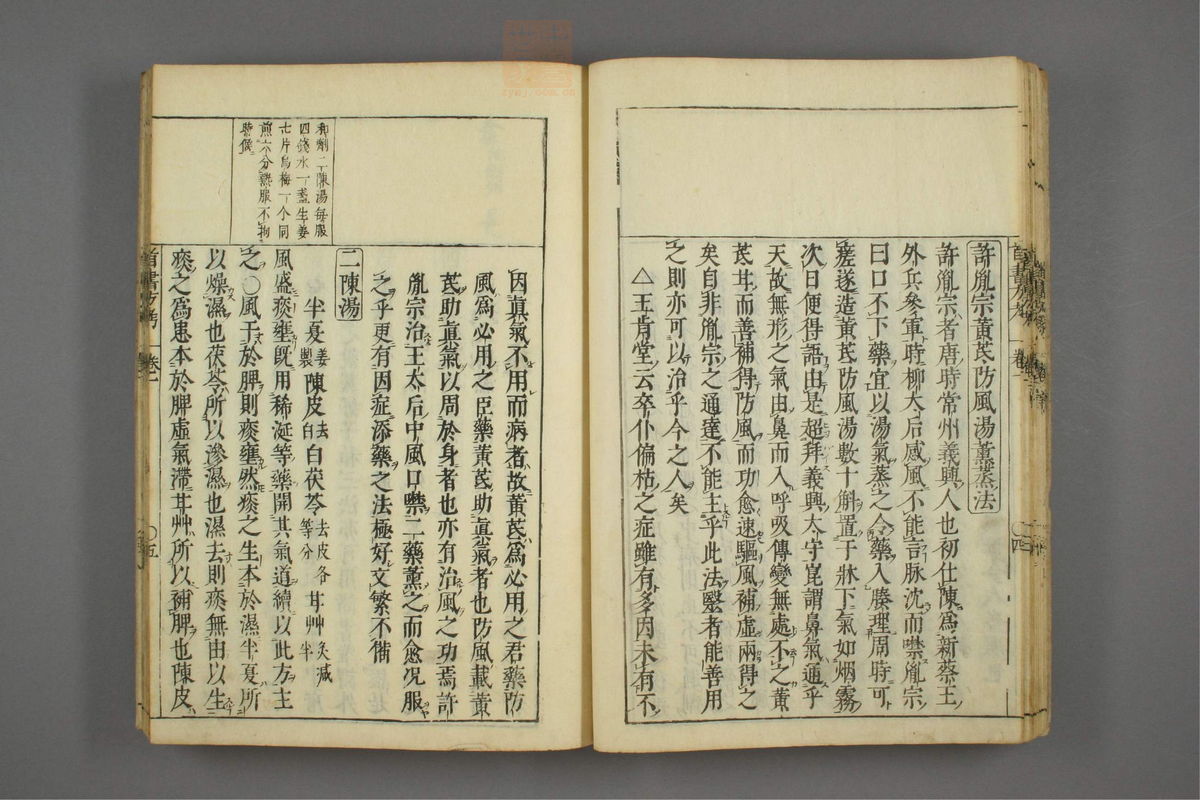 許胤宗黃芪防風湯薰蒸法
許胤宗者唐時常州義興人也初仕陳爲新蔡王
外兵參軍時柳太后感風不能言脉沈而噤胤宗
曰口不下藥宜以湯氣蒸之令藥入腠理周時可
瘥遂造黃芪防風湯數十斛置于牀下氣如烟霧
次日便得語由是超拜義興太守崑謂鼻氣通乎
天故無形之氣由鼻而入呼吸傳變無處不之黃
芪甘而善補得防風而功愈速驅風補虛兩得之
矣自非胤宗之通達不能主乎此法醫者能善用
之則亦可以治乎今之人矣
△王肯堂云卒仆偏枯之症雖有多因未有不
因眞氣不用而病者故黃芪爲必用之君藥防
風爲必用之臣藥黃芪助眞氣者也防風載黃
芪助眞氣以周於身者也亦有治風之功焉許
胤宗治王太后中風口噤二藥薰之而愈况服
之乎更有因症添藥之法極好文繁不備
和劑二陳湯每服
四錢水一盞生姜
七片烏梅一个同
煎六分熱服不拘
時候
二陳湯
半夏姜製陳皮去白白茯苓去皮各等分甘艸炙減半
風盛痰壅既用稀涎等藥開其氣道續以此方主
之○風于於脾則痰壅然痰之生本於濕半夏所
以燥濕也茯苓所以滲濕也濕去則痰無由以生
痰之爲患本於脾虛氣滯甘艸所以補脾也陳皮
首書方考
卷一
○五
卷一
○四
zysj.com.cn